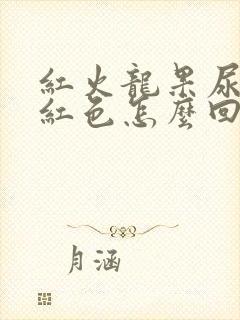 紅火龍果尿
紅色怎麼回
月涵